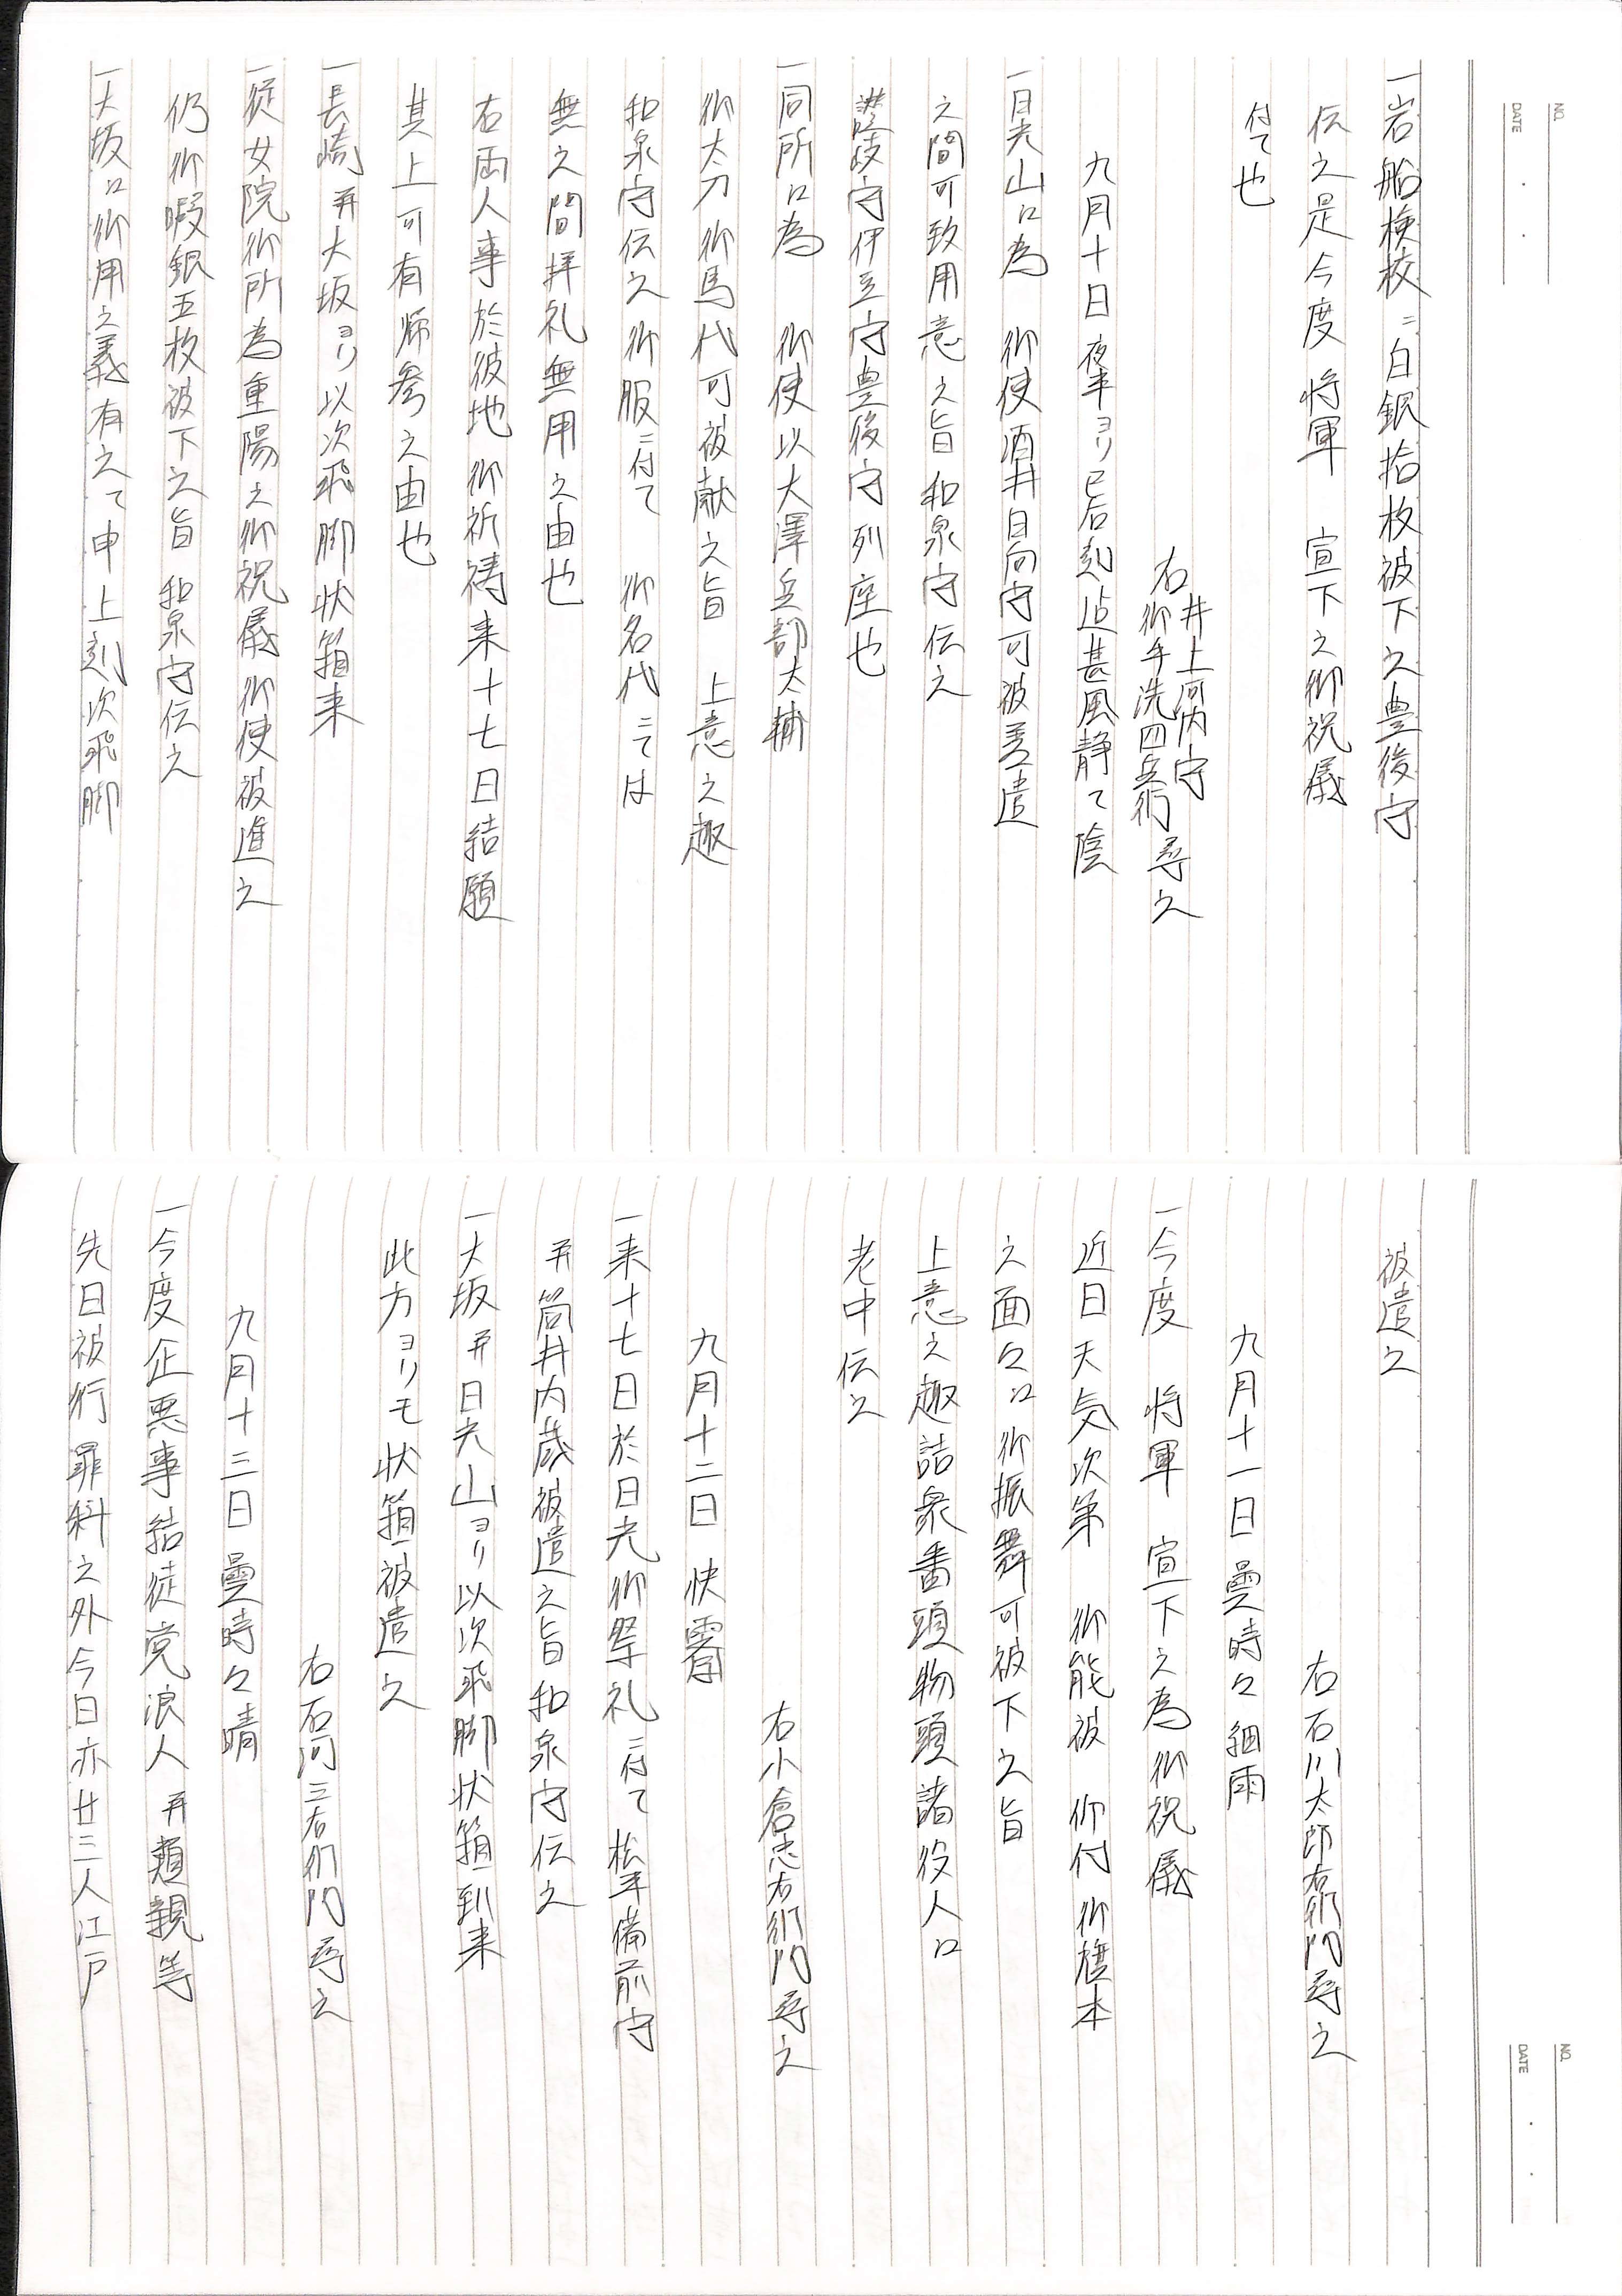 NO.
DATE
一岩船検校ニ白銀拾枚被下之豊後守
伝之是今度 将軍 宣下之御祝儀
付て也
井上河内守
右御手洗四兵衛 尋之
九月十日 夜半ヨリ巳后刻迄甚風静て陰
一日光山江為 御使酒井日向守可被差遣
之間可致用意之旨和泉守伝之
讃岐守伊豆守豊後守列座也
一同所江為 御使以大澤兵部太輔
御太刀御馬代可被献之旨 上意之趣
和泉守伝之 御服ニ付て 御名代ニては
無之間拝礼無用之由也
右両人事於彼地御祈祷来十七日結願
其上可有帰参之由也
一長崎并大坂ヨリ以次飛脚状箱来
一従女院御所為重陽之御祝儀御使被進之
仍御暇銀五枚被下之旨和泉守伝之
一大坂江御用之義有之て申上刻次飛脚
NO.
DATE
被遣之
右石川太郎右衛門尋之
九月十一日曇時々細雨
一今度 将軍 宣下之為御祝儀
近日天気次第 御能被 仰付御旗本
之面々江御振舞可被下之旨
上意之趣詰衆番頭物頭諸役人江
老中伝之
右小倉忠右衛門尋之
九月十二日 快霽
一来十七日於日光御祭礼ニ付て松平備前守
并筒井内蔵被遣之旨和泉守伝之
一大坂并日光山ヨリ以次飛脚状箱到来
此方ヨリモ状箱被遣之
右石河三右衛門尋之
九月十三日曇時々晴
一今度企悪事結徒党浪人并類親等
先日被行罪科之外今日亦廿三人江戸